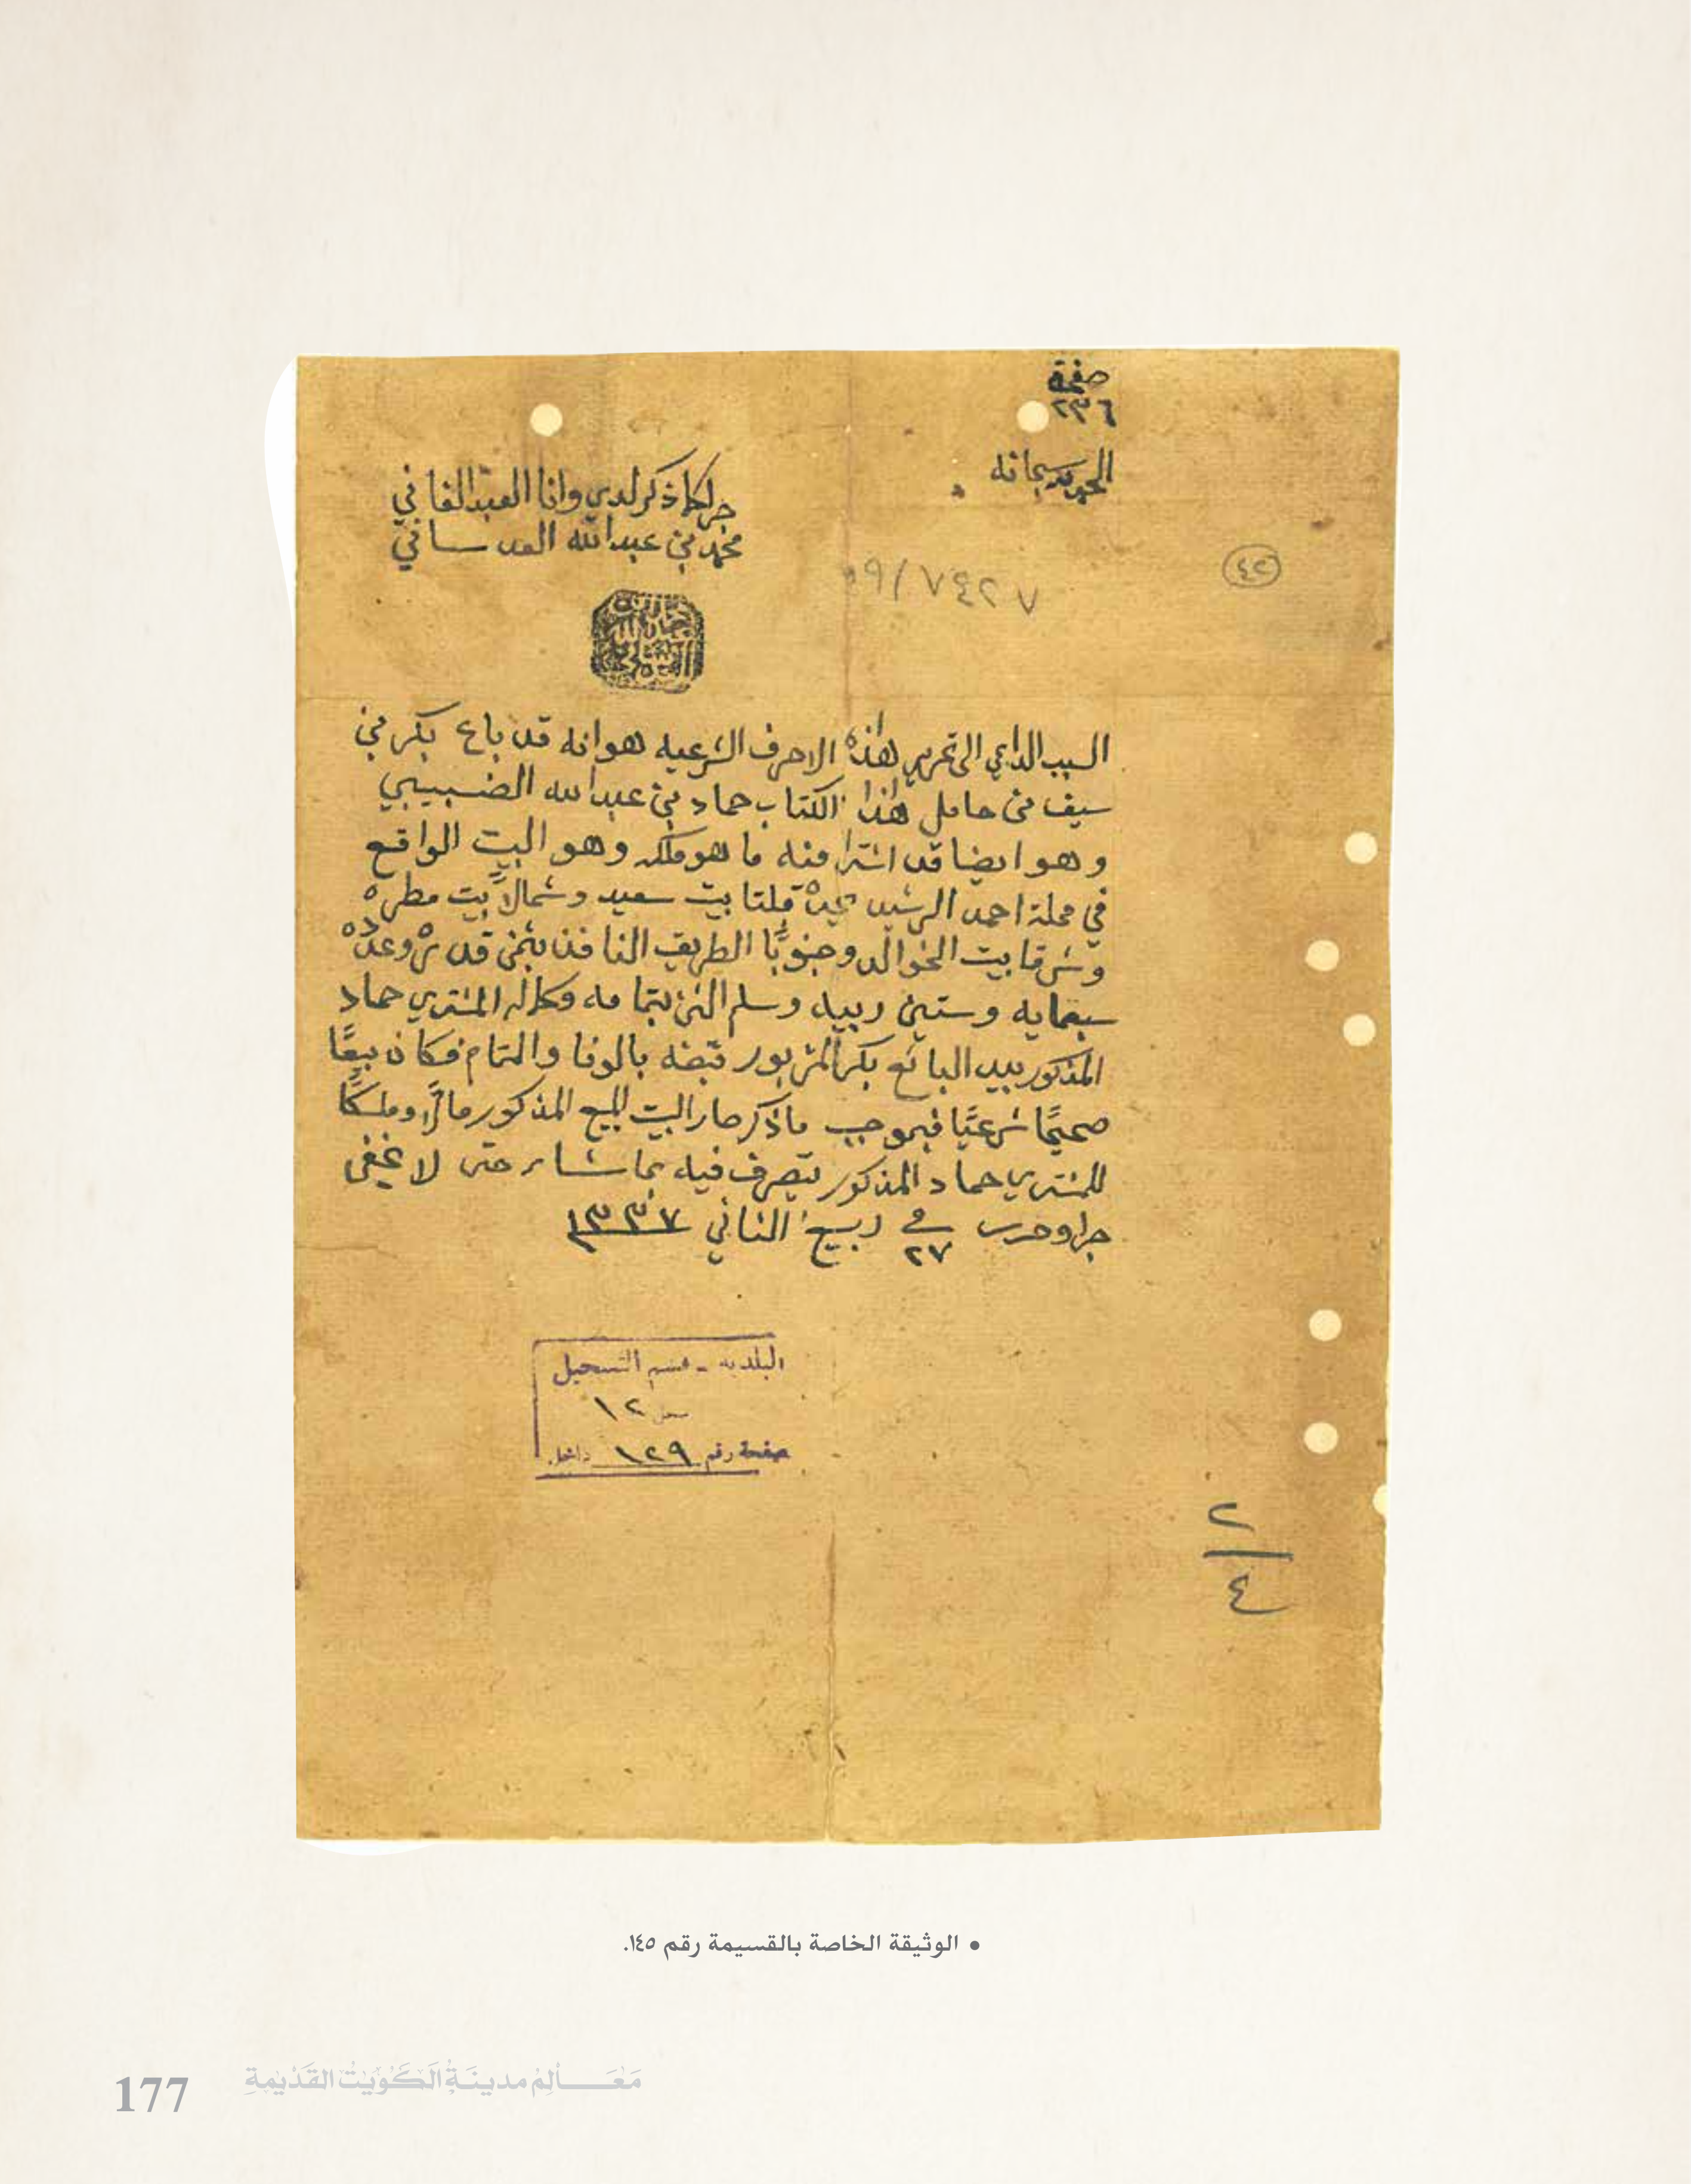 صفحة
٢٣٦
الحمد لله سبحانه
جرا كما ذكر لدي وانا العبد الفاني
محمد بن عبدالله العدساني
٤٢
٧٤٢٧/٩
السبب الداعي الى تحرير هذه الاحرف الشرعيه هو انه قد باع بكر بن
سيف من حامل هذا الكتاب حماد بن عبدالله الضبيبي
وهو ايضا قد اشترا منه ما هو ملكه وهو البيت الواقع
في محلة احمد الرشيد يحده قبلتا بيت سعيد وشمالاً بيت مطره
وشرقا بيت الخوالد وجنوبًا الطريق النافذ بثمن قدره وعده
سبعمايه وستين ربيه وسلم الثمن بتمامه وكماله المشتري حماد
المذكور بيد البائع بكر المزبور قبضه بالوفا والتمام فكان بيعًا
صحيحًا شرعيًا فبموجب ما ذكر صار البيت المبيع المذكور مالاً وملكًا
للمشتري حماد المذكور يتصرف فيه بما شاء حتى لا يخفى
جرا وحرر في ٢٧ ربيع الثاني ١٣٣٧
البلديه - قسم التسجيل
١٢
صفحة رقم ١٢٩ داخل
٢
٤
• الوثيقة الخاصة بالقسيمة رقم ١٤٥.
177 مَعَالِم مدينَة الكُوَيْت القَدْيمة